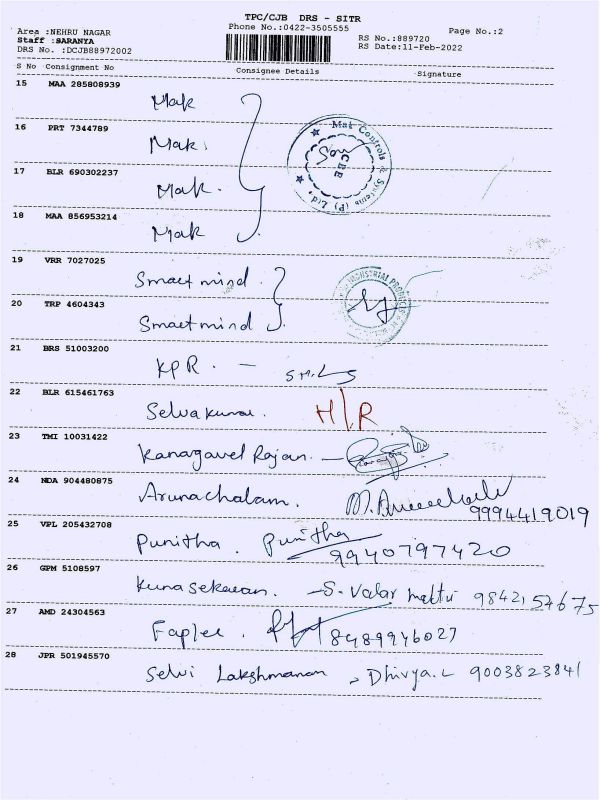 TPC/CJB DRS - SITR
Phone No.:0422-3505555
Page No.:2
Area :NEHRU NAGAR
Staff :SARANYA
DRS No. :DCJB88972002
RS No.:889720
RS Date:11-Feb-2022
S No Consignment No Consignee Details Signature
15 MAA 285808939
Mak
16 PRT 7344789
Mak.
Mak Controls & Systems (P) Ltd.,
CBE
17 BLR 690302237
Mak.
18 MAA 856953214
Mak
19 VRR 7027025
Smart mind.
INDUSTRIAL PRODUCTS
20 TRP 4604343
Smart mind
21 BRS 51003200
KPR. -
22 BLR 615461763
Selvakumar. H/R
23 TMI 10031422
Kanagavel Rajan. -
24 NDA 904480875
Arunachalam. 9994419019
25 VPL 205432708
Punitha. Punitha 9940797420
26 GPM 5108597
Kunasekaran. - S. Valar mathi 9842157675
27 AMD 24304563
Faplee. 8489946027
28 JPR 501945570
Selvi Lakshmanan - Dhivya.L 9003823841